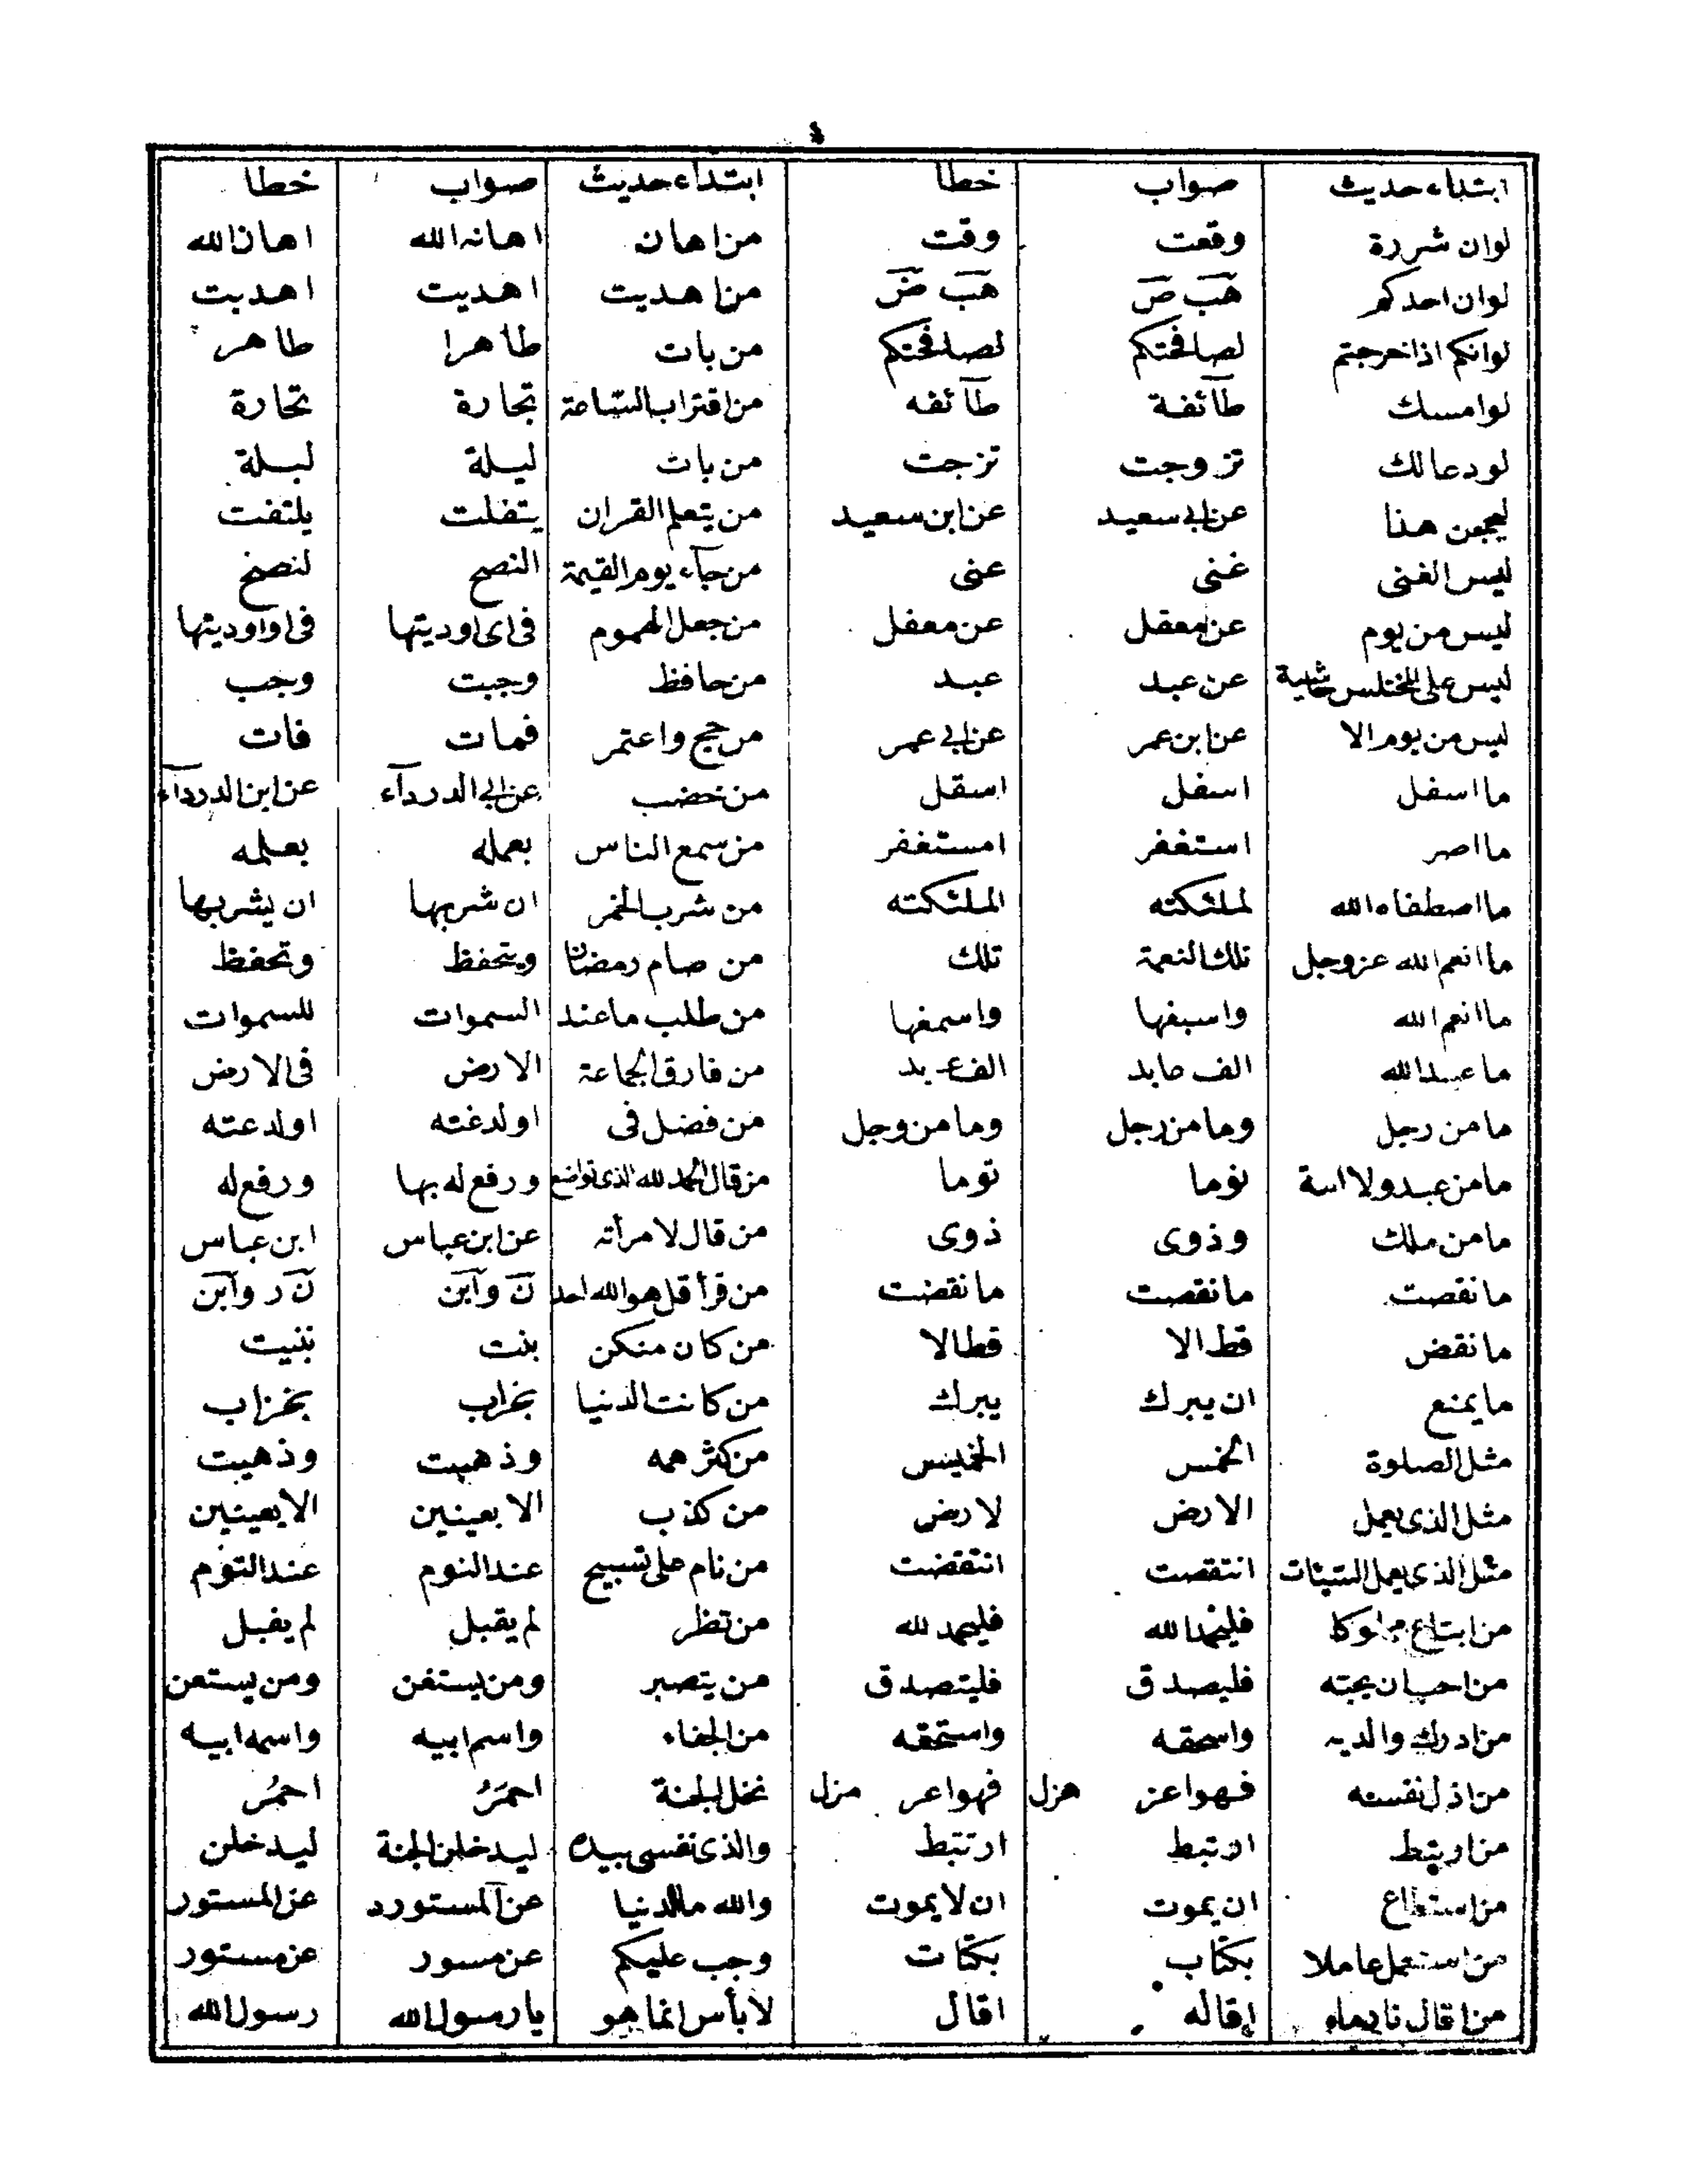 ٤
ابتداء حديث صواب خطا ابتداء حديث صواب خطا
لوان شررة وقعت وقت من اهان اهانه الله اهان الله
لوان احدكم هَبَ صَ هَبَ ضَ من اهديت اهديت اهدبت
لوانكم اذا خرجتم لصافحتكم لصدفحتكم من بات طاهرا طاهر
لوامسك طآئفة طآئفه من اقتراب الساعة تجارة تحارة
لودعا لك تزوجت تزجت من بات ليلة لبلة
ليحجن هذا عن ابى سعيد عن ابن سعيد من يتعلم القران يتفلت يلتفت
ليس الغنى غنى عنى من جآء يوم القيمة النصح لنصخ
ليس من يوم عن معقل عن معفل من جعل الهموم فى اى اوديتها فى اواوديتها
ليس على المختلس حاشية عن عبد عبد من حافظ وجبت وجب
ليس من يوم الا عن ابن عمر عن ابى عمر من حج واعتمر فمات فات
ما اسفل اسفل اسقل من خضب عن ابى الدردآء عن ابن الدردآء
ما اصر استغفر امستغفر من سمع الناس بعمله بعلمه
ما اصطفاه الله لملئكته الملئكته من شرب الخمر ان شربها ان يشربها
ما انعم الله عزوجل تلك النعمة تلك من صام رمضان ويتحفظ وتحفظ
ما انعم الله واسبغها واسمغها من طلب ما عند السموات للسموات
ما عبد الله الف عابد الف عـبد من فارق الجماعة الارض فى الارض
ما من رجل وما من رجل وما من وجل من فضل فى اولدغته اولدعته
ما من عبد ولا امة نوما توما من قال الحمد لله الذى تواضع ورفع له بها ورفع له
ما من ملك وذوى ذوى من قال لامرأته عن ابن عباس ابن عباس
ما نقصت ما نقصت ما نقضت من قرأ قل هو الله احد نَ وآبن نَ ر وآبن
ما نقض قط الا قطالا من كان منكن بنت بنيت
ما يمنع ان يبرك يبرك من كانت الدنيا بخراب بخزاب
مثل الصلوة الخمس الخميس من كثر همه وذهبت وذهيت
مثل الذى يعمل الارض لارض من كذب الا بعينين الا يعينين
مثل الذى يعمل السيئات انتقصت انتقضت من نام على تسبيح عند النوم عند التوم
من ابتاع مملوكا فليحمد الله فليحمد لله من نظر لم يقبل لم يفبل
من احب ان يجته فليصدق فليتصدق من يتصبر ومن يستغن ومن يستعن
من ادرك والديه واسحقه واستحقه من الجفاء واسم ابيه واسمه ابيه
من اذل نفسه فهو اعز هزل فهو اعر مزل نخل الجنة احمَرُ احمُر
من ارتبط ارتبط ارتتبط والذى نفسى بيده ليدخلن الجنة ليدخلن
من استطاع ان يموت ان لا يموت والله ما الدنيا عن المستورد عن المستور
من استعمل عاملا بكتاب بكتات وجب عليكم عن مسور عن مستور
من اقال نادما اقاله اقال لا بأس انما هو يا رسول الله رسول الله